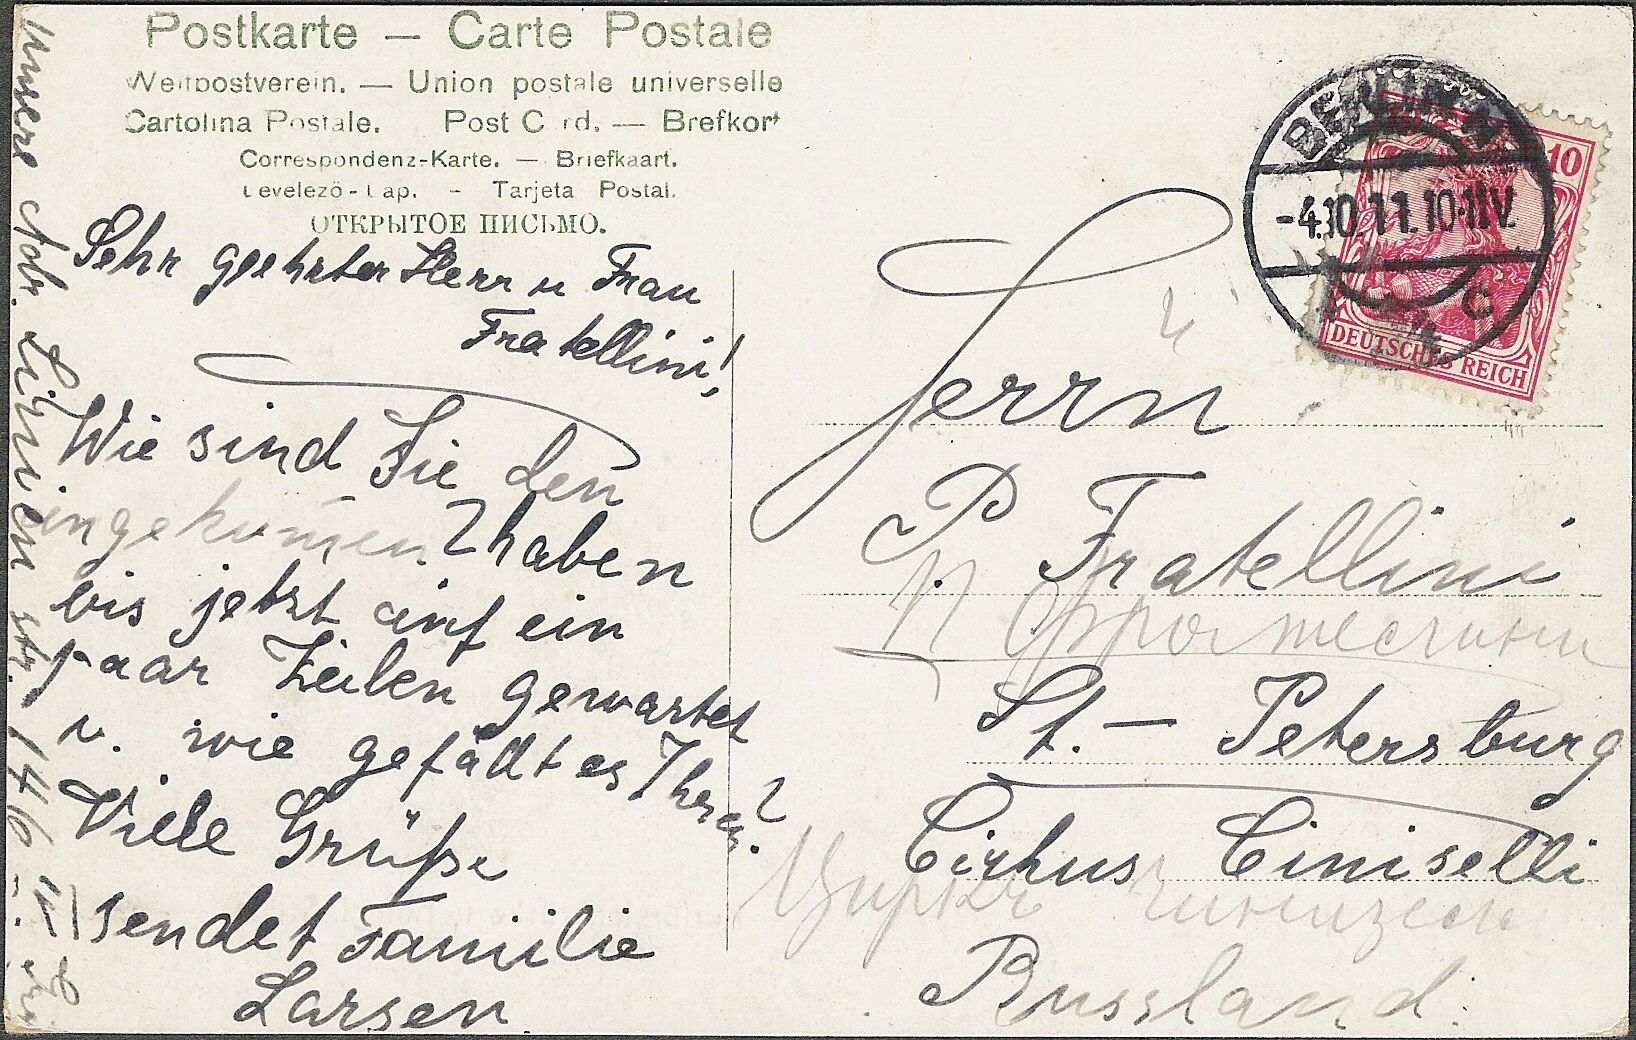 Postkarte — Carte Postale
Weltpostverein. — Union postale universelle
Cartolina Postale. Post Card. — Brefkort
Correspondenz-Karte. — Briefkaart.
Levelező-Lap. - Tarjeta Postal.
ОТКРЫТОЕ ПИСЬМО.
Sehr geehrter Herr u Frau
Fratellini!
Wie sind Sie den
ingekumen? haben
bis jetzt auf ein
paar Zeilen gewartet
u. wie gefällt es Ihnen?
Viele Grüße
sendet Familie
Larsen.
Unsere Adr. Linien str. 146 IV
BERLIN N
-4.10.11.10-11V.
C
10
DEUTSCHES REICH
Herrn
P Fratellini
St. — Petersburg
Cirkus Ciniselli
Циркъ
Russland.